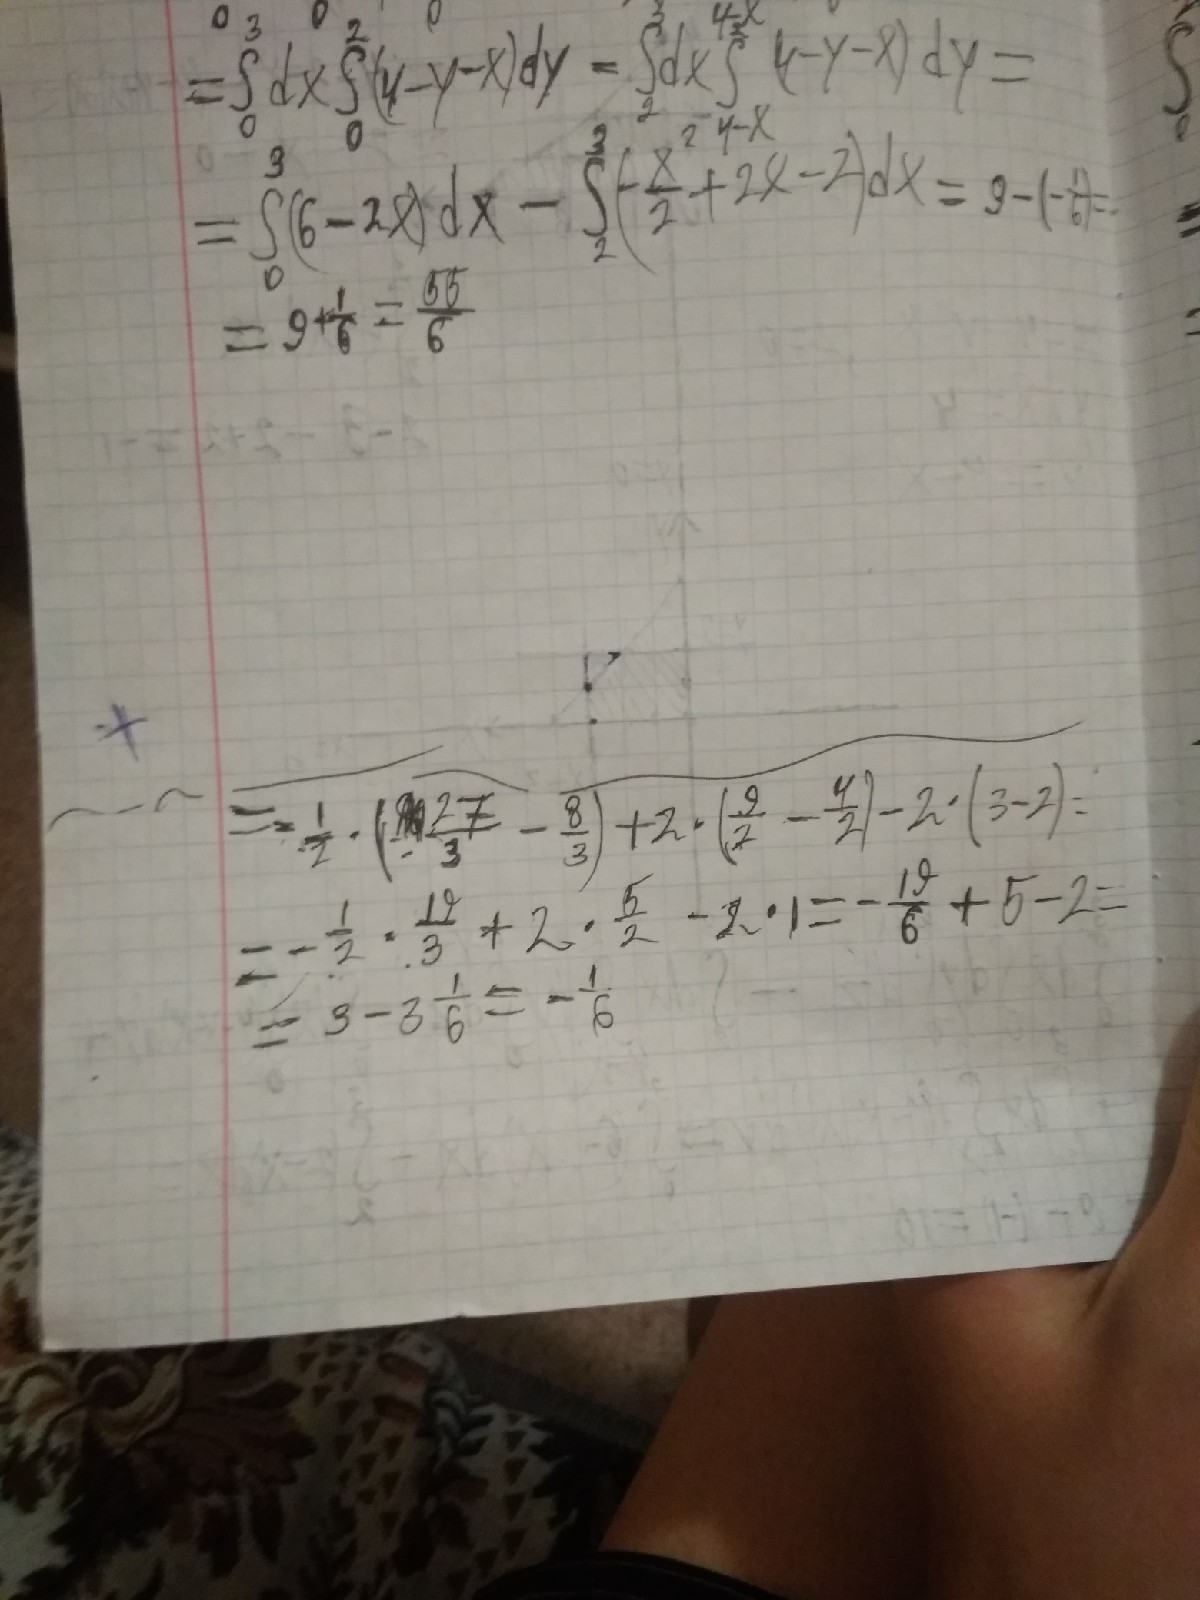 = ∫₀³ dx ∫₀² (4-y-x)dy - ∫₂³ dx ∫ (4-y-x) dy =
= ∫₀³ (6-2x) dx - ∫₂³ (-x²/2 + 2x - 2) dx = 9 - (-1/6) =
= 9 + 1/6 = 55/6
= - 1/2 · (27/3 - 8/3) + 2 · (9/2 - 4/2) - 2 · (3-2) =
= - 1/2 · 19/3 + 2 · 5/2 - 2 · 1 = - 19/6 + 5 - 2 =
= 3 - 3 1/6 = - 1/6